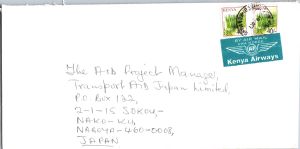 KENYA
BY AIR MAIL
Kenya Airways
The AID Project Manager,
Transport AID Japan Limited,
P.O Box 132,
2-1-15 SOKOU-
NAKO-KU,
NAGOYA-460-0008,
JAPAN